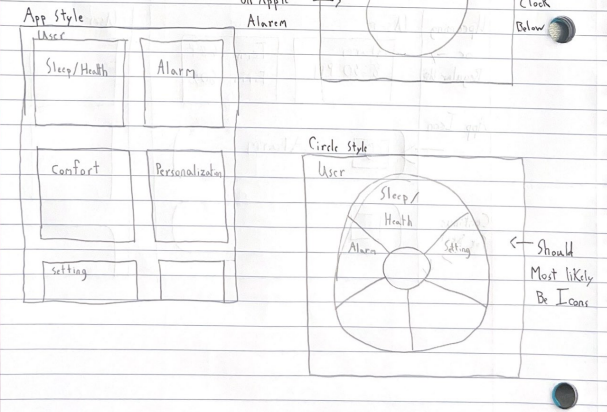 App Style
User
Sleep/Health
Alarm
Comfort
Personalization
Setting
on Apple
Alarem
Clock
Below
Circle Style
User
Sleep/
Health
Alarm
Setting
Should
Most likely
Be Icons